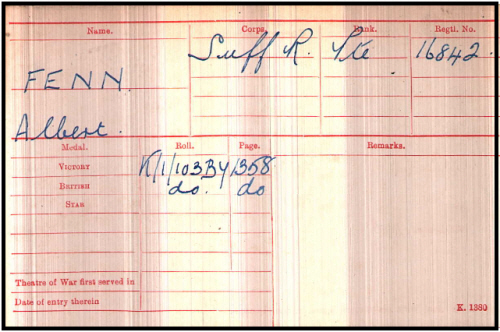 Name. Corps. Rank. Regtl. No.
Suff R. Pte 16842.
FENN
Albert.
Medal. Roll. Page. Remarks.
VICTORY K/1/103By 1358
BRITISH do. do
STAR
Theatre of War first served in
Date of entry therein
K. 1380